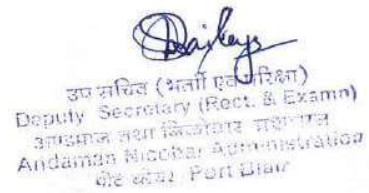 उप सचिव (भर्ती एवं परीक्षा)
Deputy Secretary (Rect. & Examn)
अण्डमान तथा निकोबार प्रशासन
Andaman Nicobar Administration
Port Blair